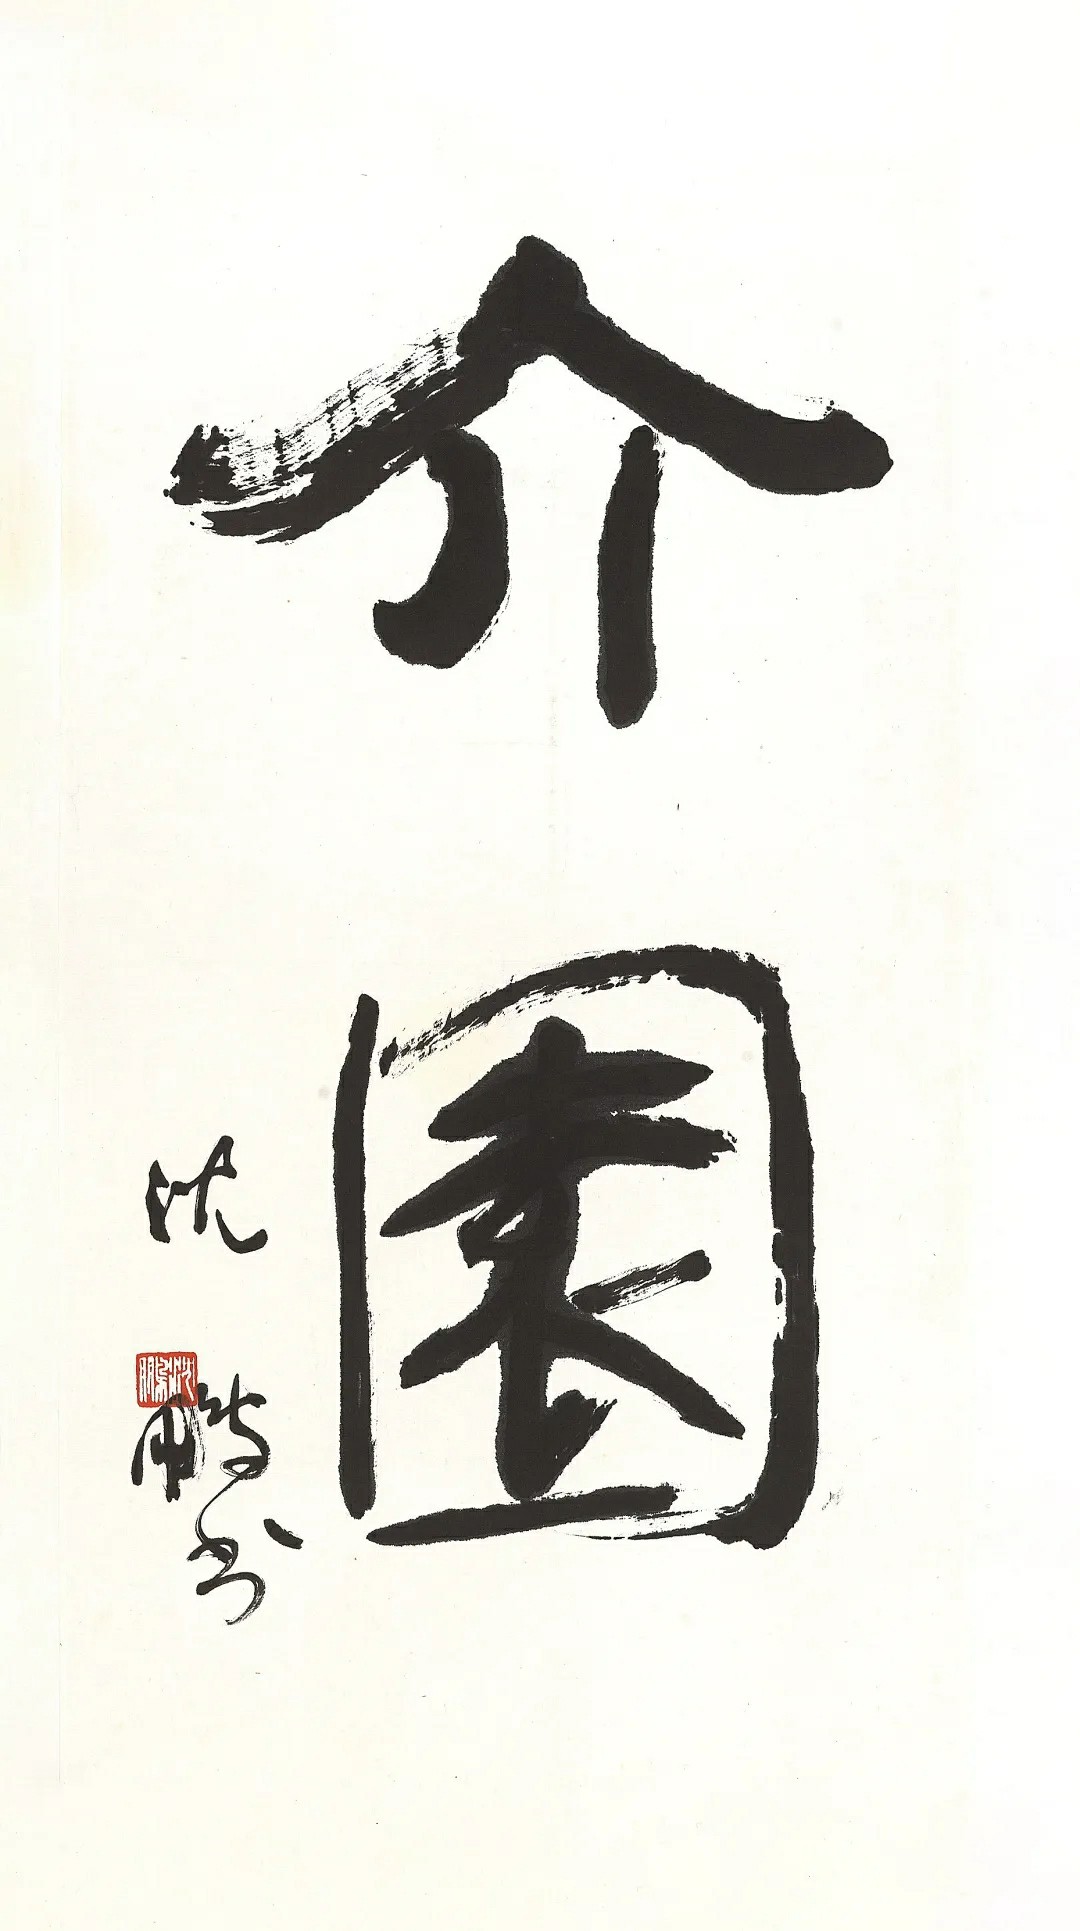 介園
沈鹏书
沈鵬